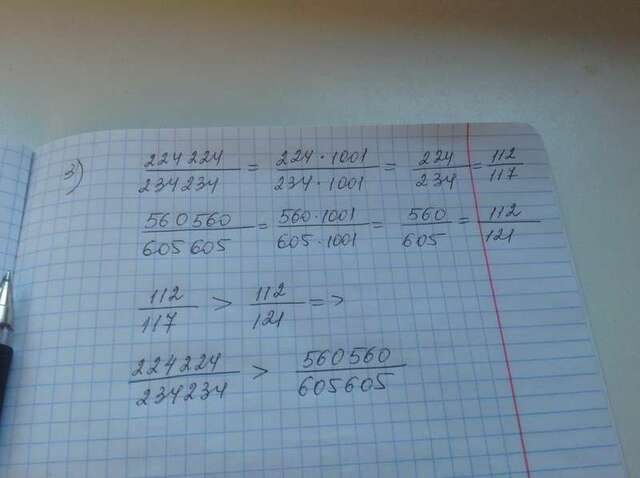 3) 224 224 / 234 234 = 224 · 1001 / 234 · 1001 = 224 / 234 = 112 / 117
560 560 / 605 605 = 560 · 1001 / 605 · 1001 = 560 / 605 = 112 / 121
112 / 117 > 112 / 121 =>
224224 / 234234 > 560560 / 605605